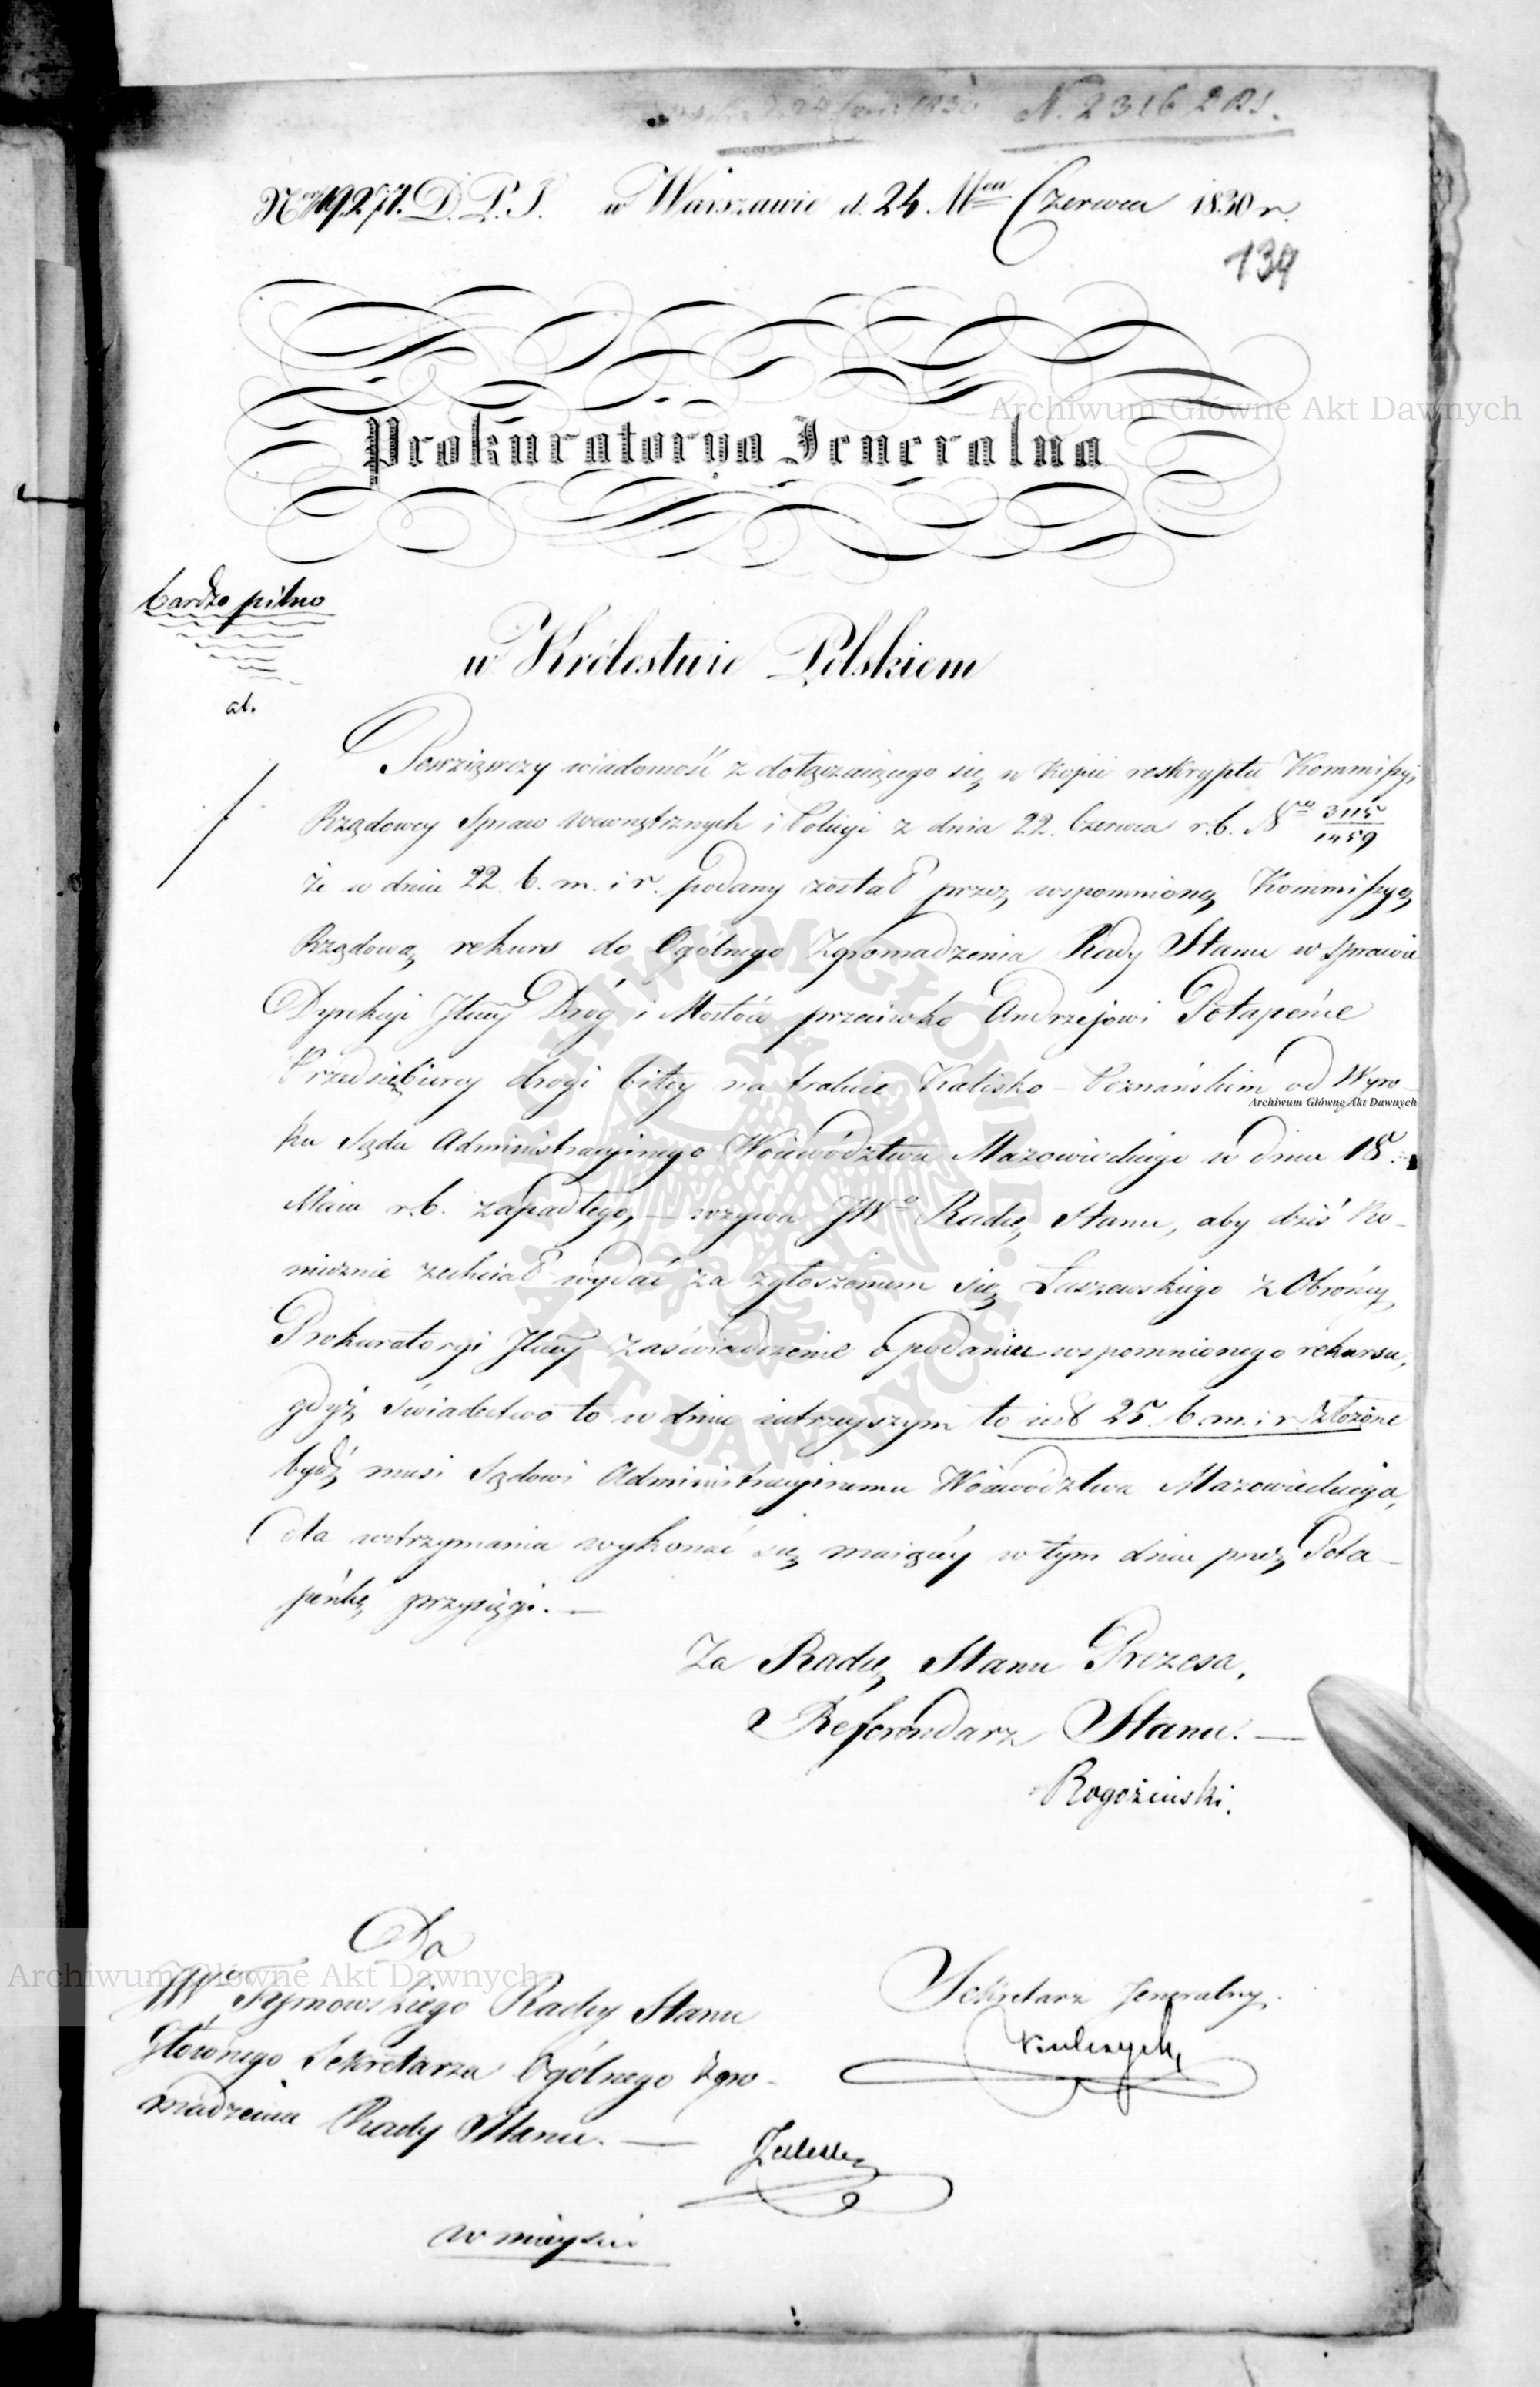 N. 23162 RS.
N. 19271. D. P. J. w Warszawie d. 24. Mca Czerwca 1830 r.
139
Prokuratorya Jeneralna
bardzo pilno
w Królestwie Polskiem
at.
Powziąwszy wiadomość z dołączaiącego się w kopii reskryptu Kommissyi
Rządowey Spraw Wewnętrznych i Policyi z dnia 22. Czerwca r.b. No 3115/1459
że w dniu 22. b. m. i r. podany został przez wspomnioną Kommissyą
Rządową rekurs do Ogólnego Zgromadzenia Rady Stanu w sprawie
Dyrekcji Jlney Dróg i Mostów przeciwko Andrzejowi Potapeńce
Przedsiębiercy drogi bitey na trakcie Kalisko-Poznańskim od Wyro-
ku Sądu Administracyinego Woiewództwa Mazowieckiego w dniu 18.
Maia r.b. zapadłego, — wzywa JWo Radcę Stanu, aby dziś ko-
niecznie zechciał wydać za zgłoszeniem się Łaszewskiego z Obrońcy
Prokuratoryi Jlney zaświadczenie o podaniu wspomnionego rekursu,
gdyż świadectwo to w dniu iutrzeyszym to iest 25. b.m. i r. złożone
bydź musi Sądowi Administracyinemu Woiewództwa Mazowieckiego,
dla wstrzymania wykonać się maiącéy w tym dniu przez Pota-
peńkę przysięgi. —
Za Radcę Stanu Prezesa,
Referendarz Stanu. —
Rogoziński.
Do
JWo Tymowskiego Radcy Stanu
Głównego Sekretarza Ogólnego Zgro-
madzenia Rady Stanu. —
Sekretarz Jeneralny.
Kulczycki
w mieyscu
Archiwum Główne Akt Dawnych
Archiwum Główne Akt Dawnych
Archiwum Główne Akt Dawnych
ARCHIWUM GŁÓWNE AKT DAWNYCH